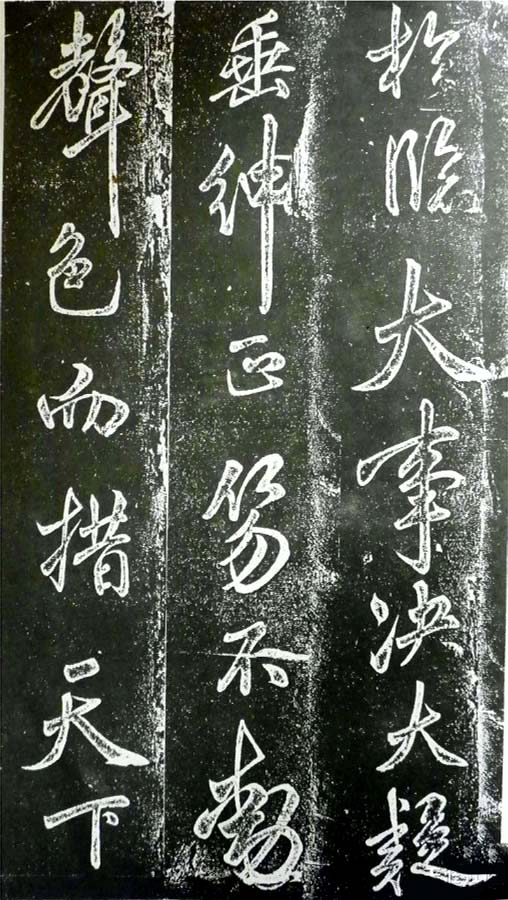 於臨大事决大疑
垂紳正笏不動
聲色而措天下